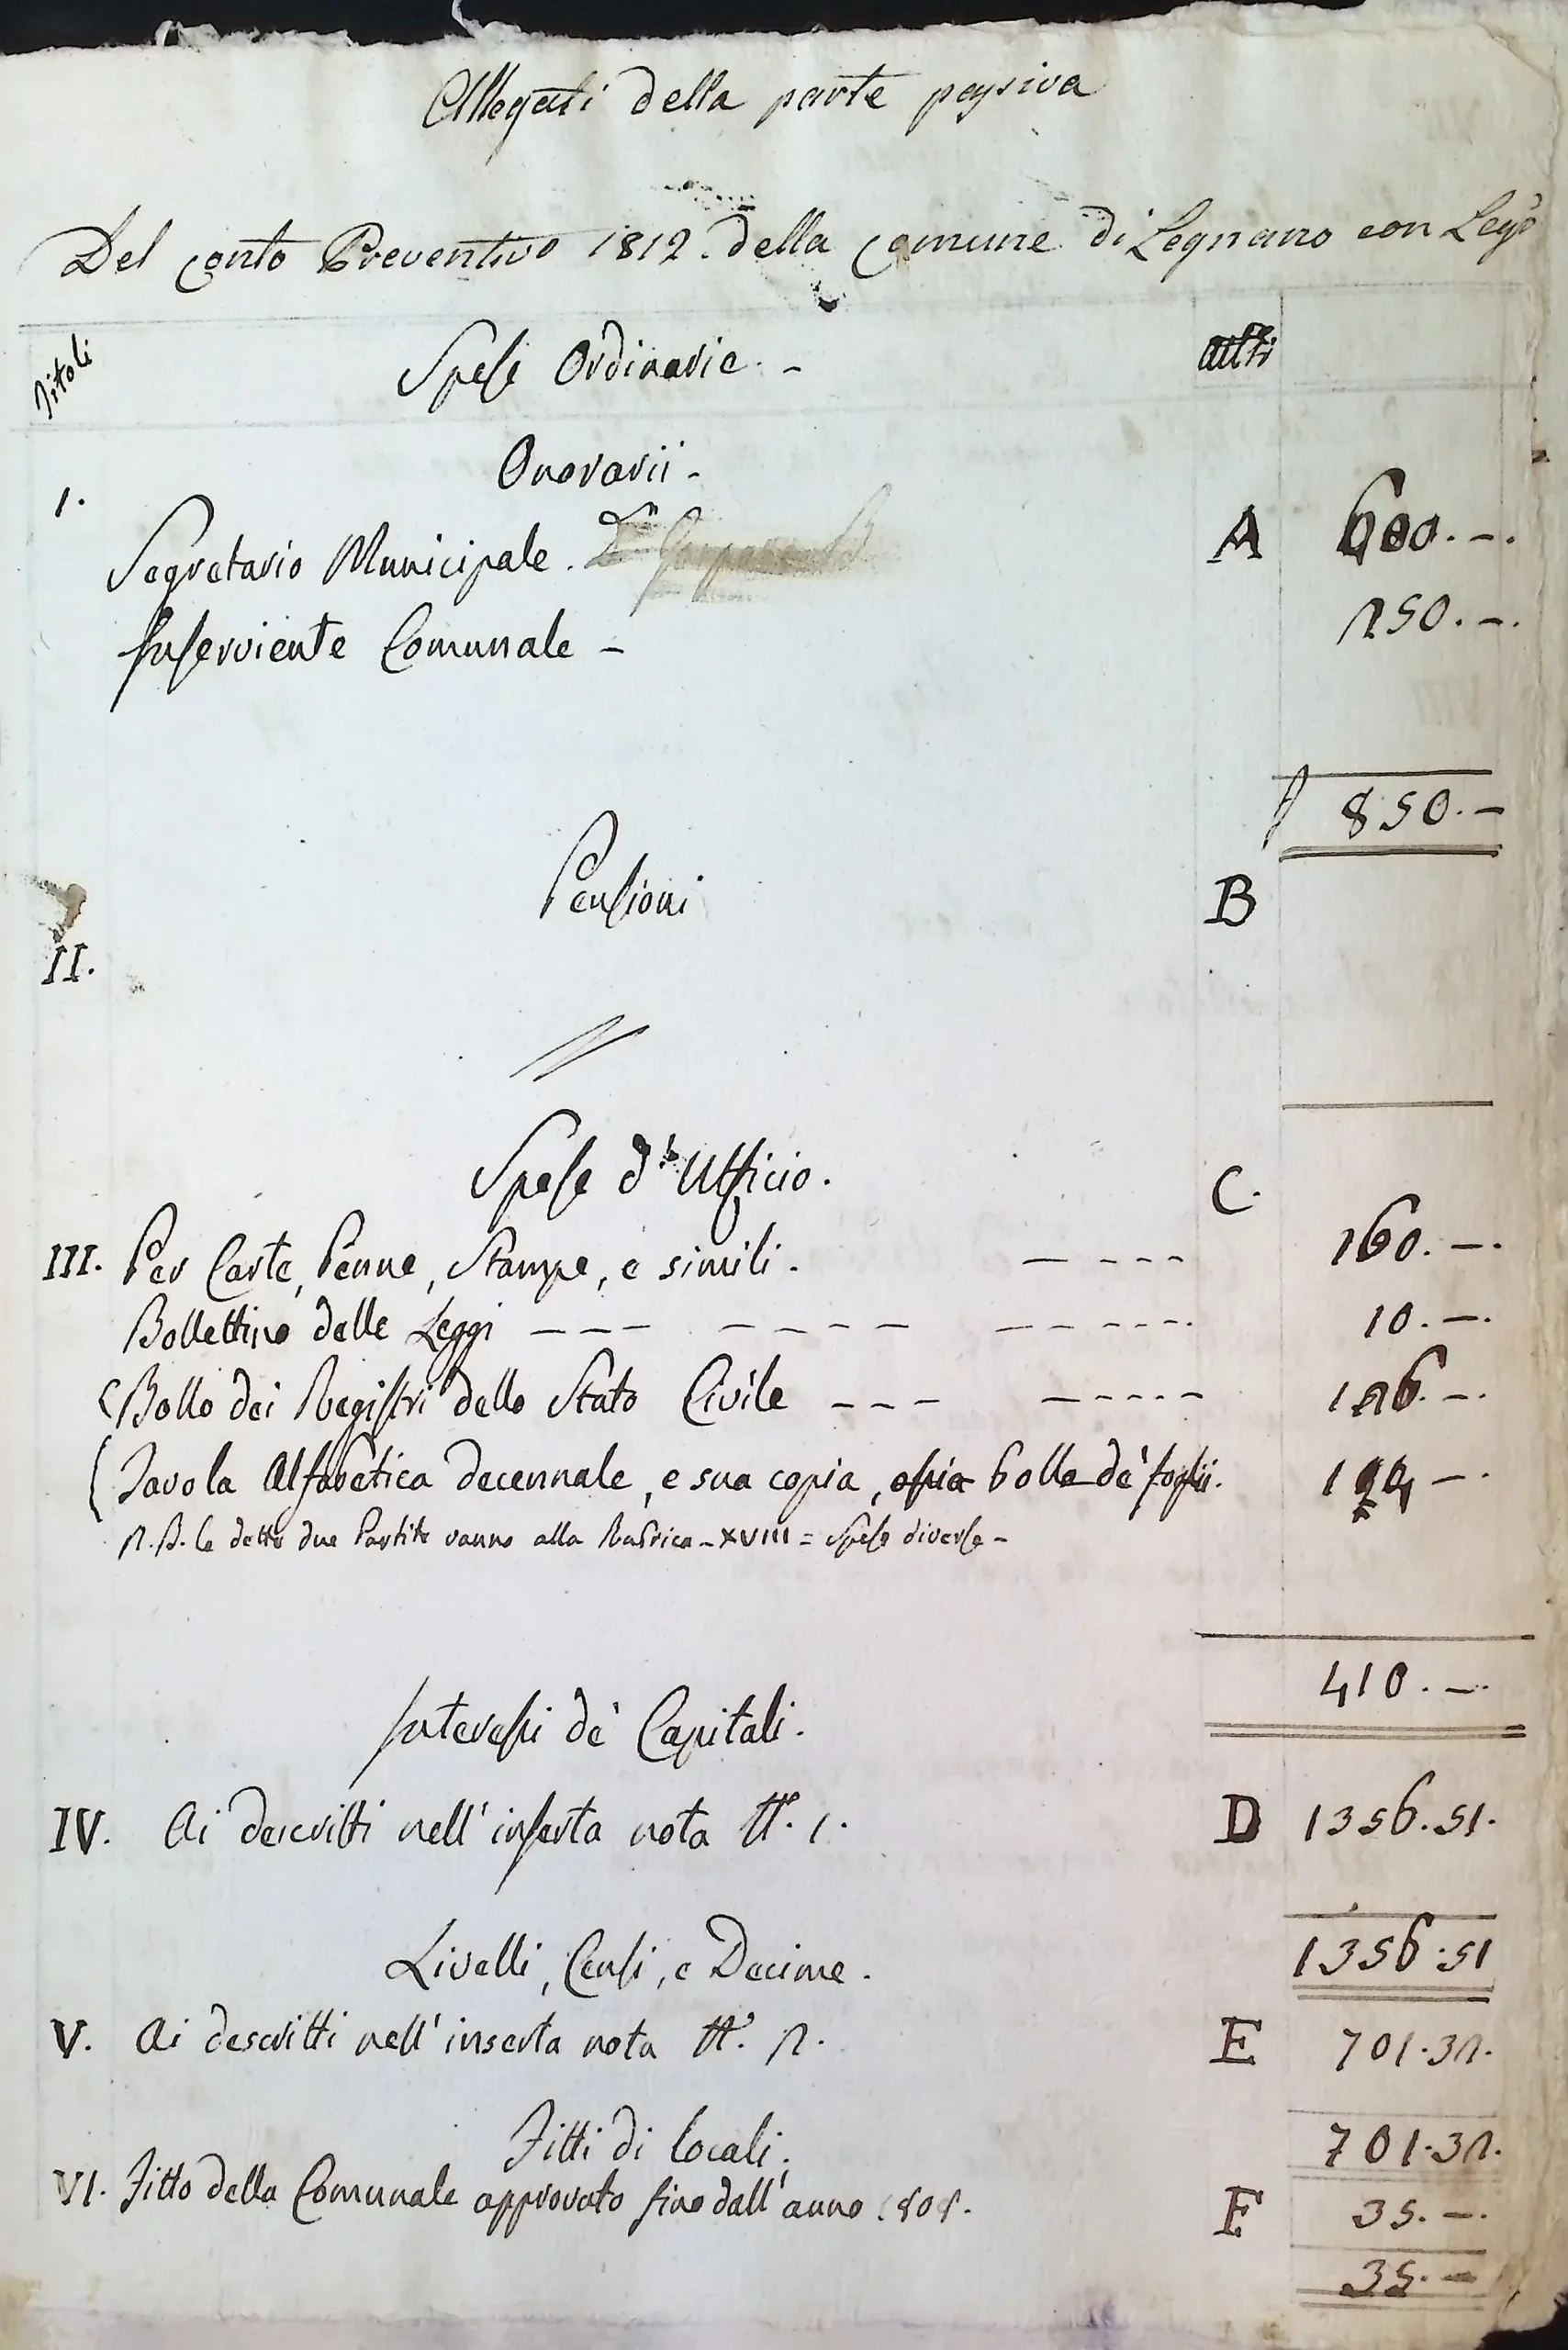 Allegati della parte passiva
Del conto Preventivo 1812. della comune di Legnano con Leg.º
Titoli Spese Ordinarie. - atti
Onorarii -
1. Segretario Municipale. A 600. -.
Inserviente Comunale - 250. -.
850. -
Pensioni B
II.
Spese d'Ufficio. C.
III. Per Carte, Penne, Stampe, e simili. - - - - 160. -.
Bollettino delle Leggi - - - - - - - - - - - -. 10. -.
(Bollo dei Registri dello Stato Civile - - - - - - - - 126. -.
(Tavola Alfabetica decennale, e sua copia, ossia bollo de' foglii.
N.B. le dette due Partite vanno alla Rubrica - XVIII = Spese diverse -
410. -.
Interessi de' Capitali.
IV. Ai descritti nell'inserta nota N.º 1. D 1356.51.
1356.51
Livelli, Censi, e Decime.
V. Ai descritti nell'inserta nota N.º 2. E 701.32.
701.32.
Fitti di locali.
VI. Fitto della Comunale approvato fino dall'anno 1808. F 35. -.
35. -